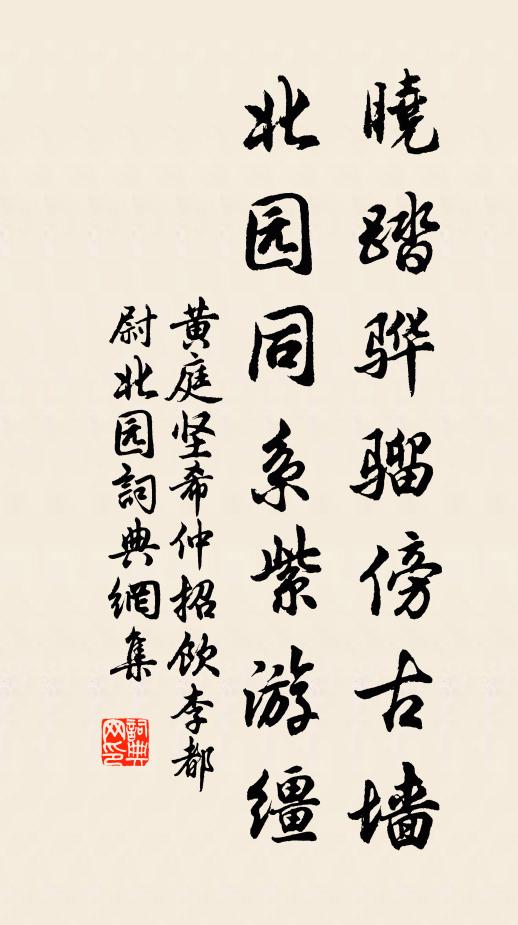 曉踏骅骝傍古墙
北园同系紫游缰
黄庭坚希仲招饮李都
尉北园詞典網集
詞典网印